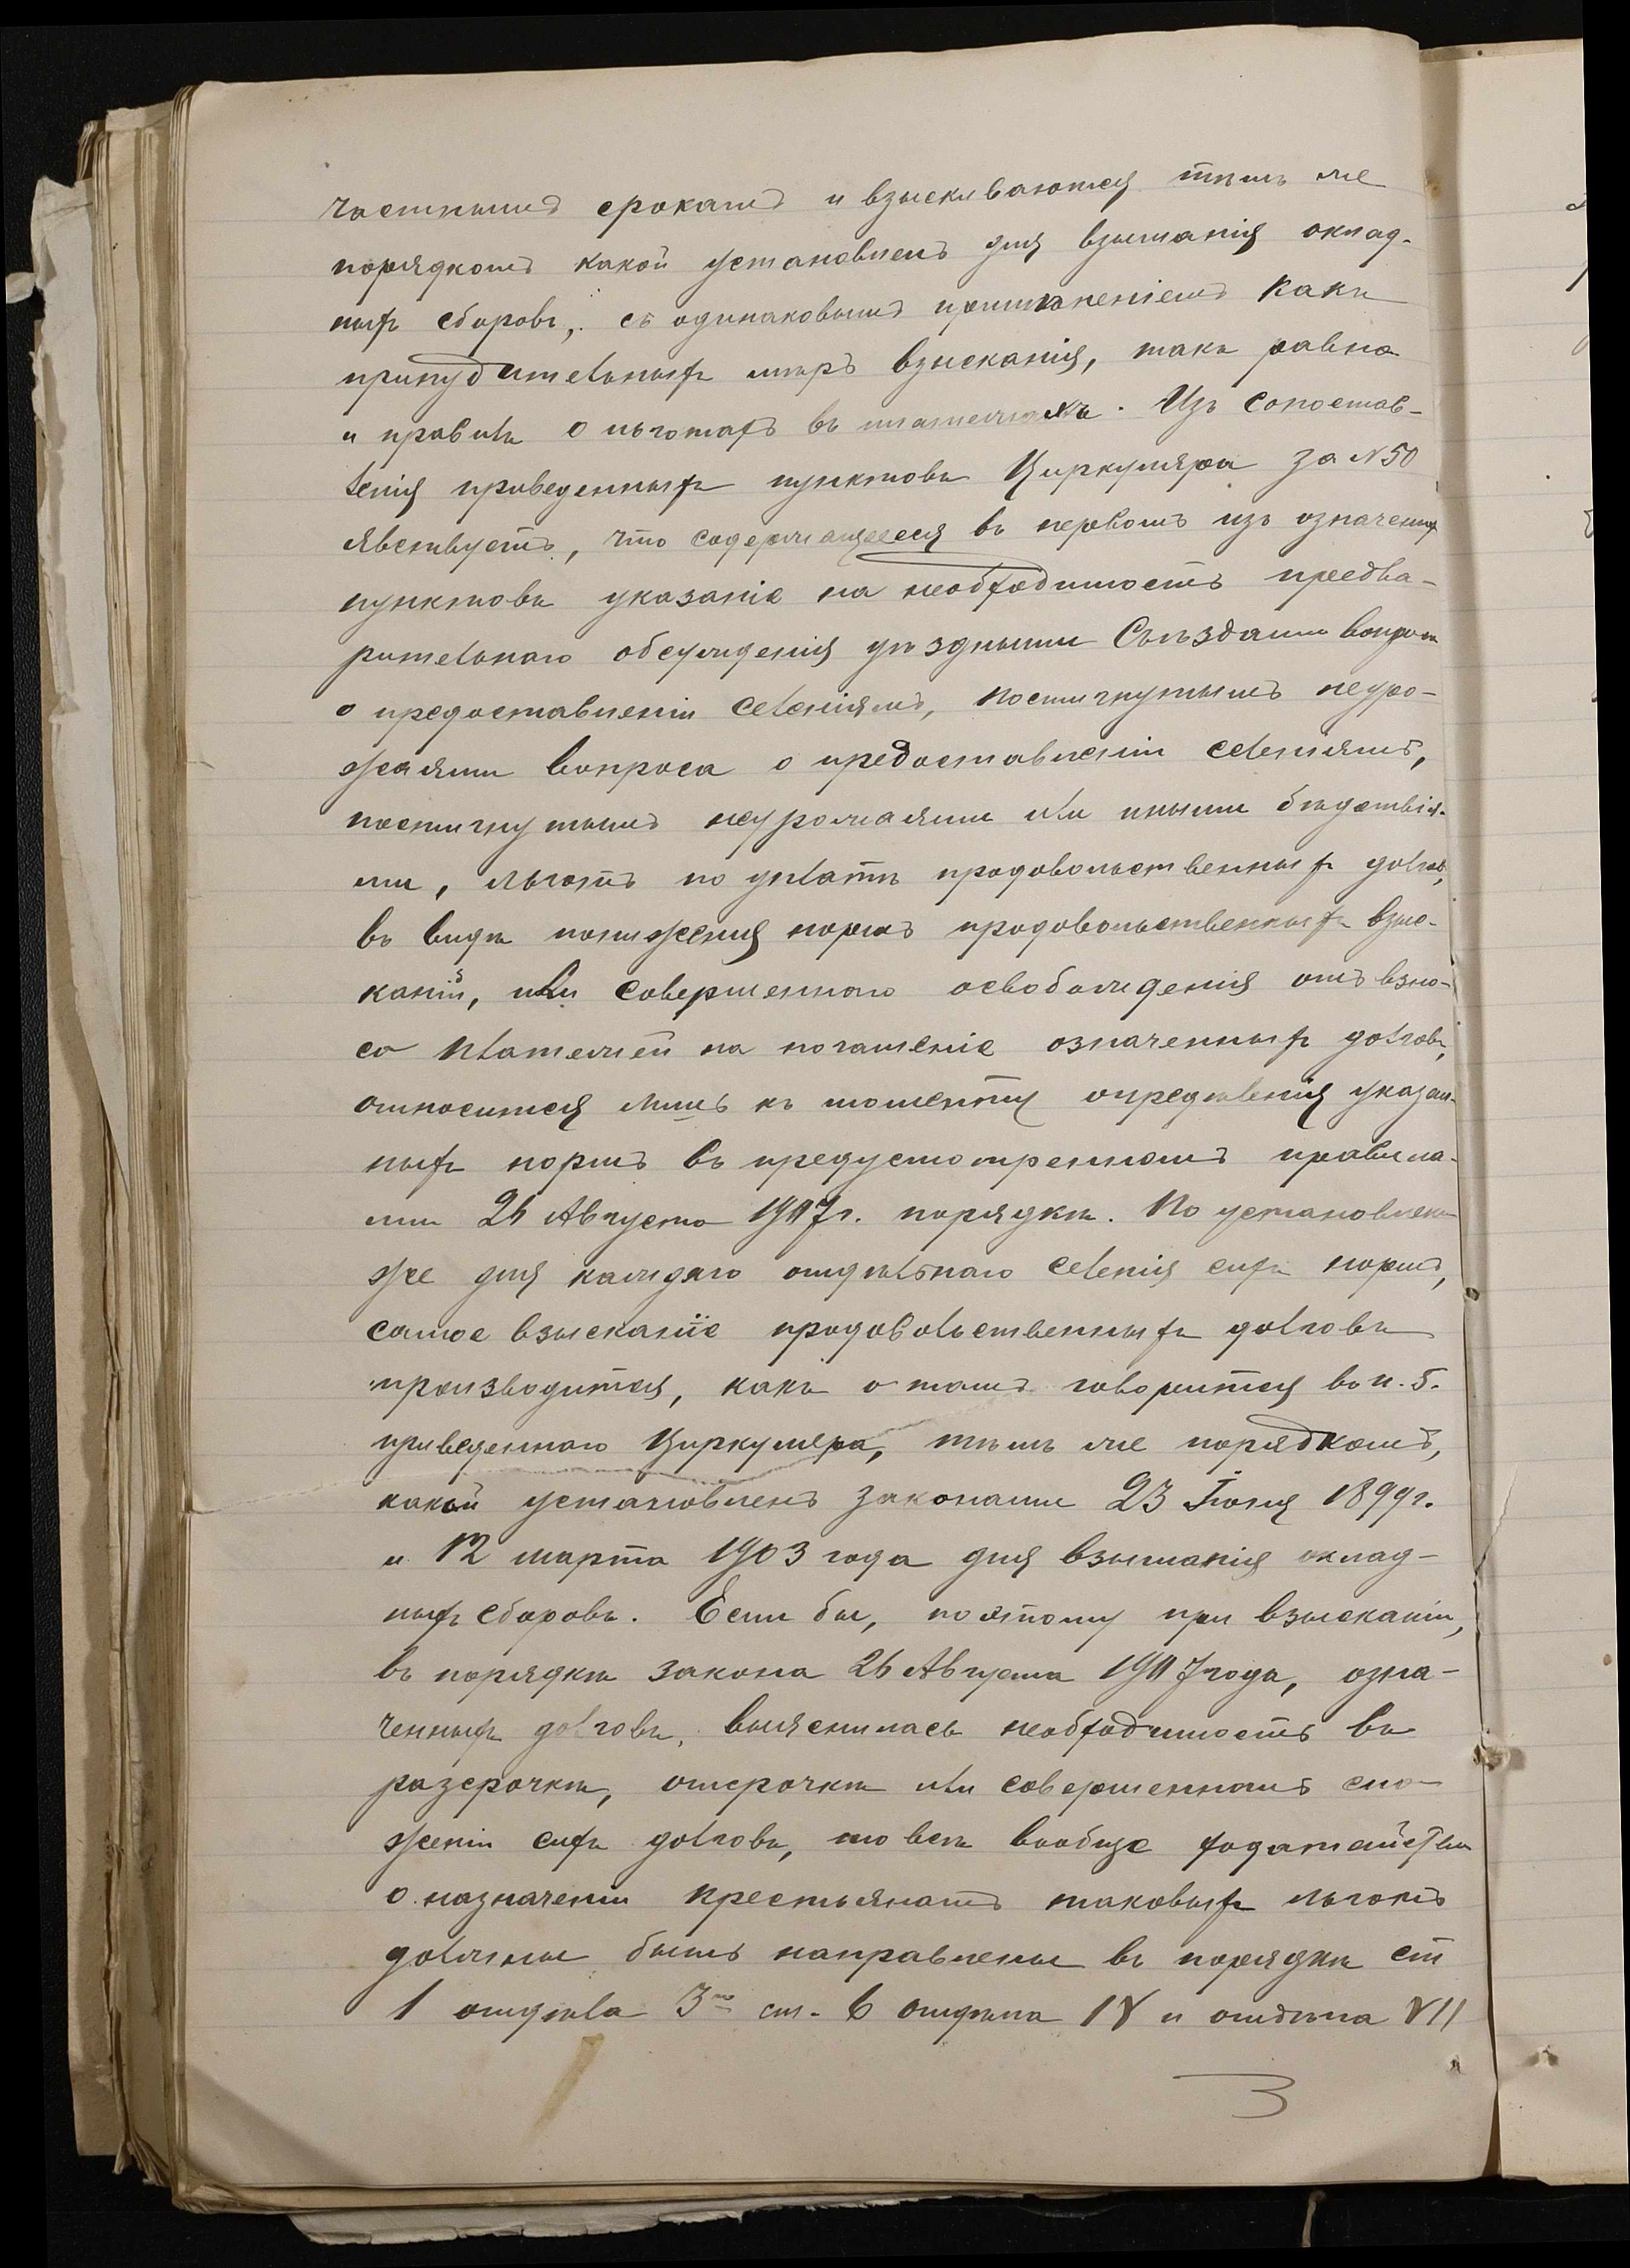 частнымъ срокамъ и взыскиваются тѣмъ же
порядкомъ какой установленъ для взыманія оклад-
ныхъ сборовъ, съ одинаковымъ примѣненіемъ какъ
принудительныхъ мѣръ взысканія, такъ равно
и правилъ о льготахъ въ платежахъ. Изъ сопостав-
ленія приведенныхъ пунктовъ Циркуляра за N 50
явствуетъ, что содержащееся въ первомъ изъ означенныхъ
пунктовъ указаніе на необходимость предва-
рительнаго обсужденія уѣздными Съѣздами вопроса
о предоставленіи селеніямъ, постигнутымъ неуро-
жаями вопроса о предоставленіи селеніямъ,
постигнутымъ неурожаями или иными бѣдствія-
ми, льготъ по уплатѣ продовольственныхъ долговъ,
въ видѣ пониженія нормъ продовольственныхъ взыс-
каній, или совершеннаго освобожденія отъ взно-
са платежей на погашеніе означенныхъ долговъ,
относится лишь къ моменту опредѣленія указан-
ныхъ нормъ въ предусмотренномъ правила-
ми 26 Августа 1907 г. порядкѣ. По установлении
же для каждаго отдѣльнаго селенія сихъ нормъ,
самое взысканіе продовольственныхъ долговъ
производится, какъ о томъ говорится въ п. 5.
приведеннаго Циркуляра, тѣмъ же порядкомъ,
какой установленъ законами 23 Іюня 1899 г.
и 12 марта 1903 года для взыманія оклад-
ныхъ сборовъ. Если бы, поэтому при взысканіи,
въ порядкѣ закона 26 Августа 1907 года, озна-
ченныхъ долговъ, выяснилась необходимость въ
разсрочкѣ, отсрочкѣ или совершенномъ сло-
женіи сихъ долговъ, то всѣ вообще ходатайства
о назначении крестьянамъ таковыхъ льготъ
должны быть направлены въ порядкѣ ст
1 отдѣла 3го ст. 6 отдѣла IV и отдѣла VII